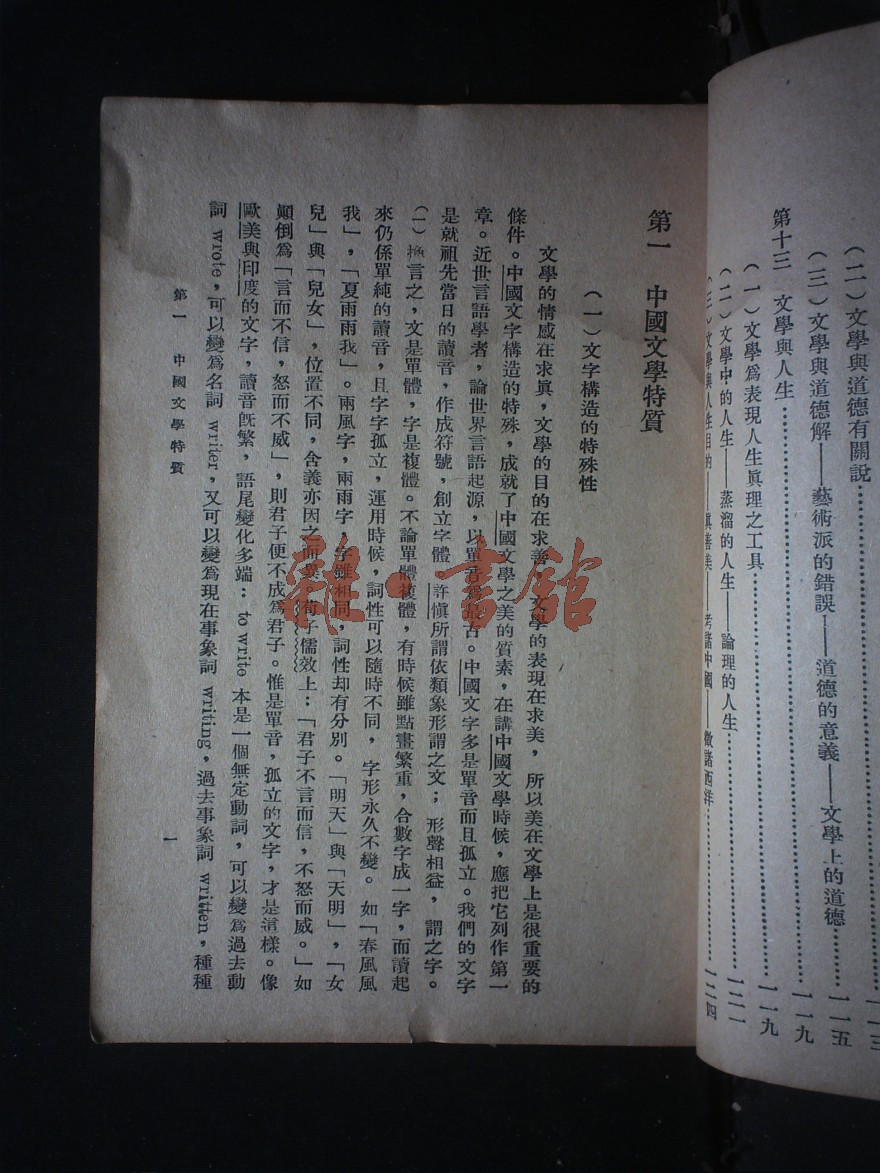 (二)文學與道德有關說
(三)文學與道德解——藝術派的錯誤——道德的意義——文學上的道德……一一五
第十三 文學與人生……一一九
(一)文學爲表現人生眞理之工具……一一九
(二)文學中的人生——蒸溜的人生——論理的人生……一二一
(三)文學與人生目的——眞善美——考諸中國——徵諸西洋……一二四
第一 中國文學特質
(一)文字構造的特殊性
文學的情感在求眞,文學的目的在求善,文學的表現在求美,所以美在文學上是很重要的
條件。中國文字構造的特殊,成就了中國文學之美的質素,在講中國文學時候,應把它列作第一
章。近世言語學者,論世界言語起源,以單音爲最古。中國文字多是單音而且孤立。我們的文字
是就祖先當日的讀音,作成符號,創立字體 許愼所謂依類象形謂之文;形聲相益,謂之字。
(一)換言之,文是單體,字是複體。不論單體複體,有時候雖點畫繁重,合數字成一字,而讀起
來仍係單純的讀音,且字字孤立,運用時候,詞性可以隨時不同,字形永久不變。如「春風風
我」,「夏雨雨我」。兩風字,兩雨字,字雖相同,詞性却有分別。「明天」與「天明」,「女
兒」與「兒女」,位置不同,含義亦因之而異 荀子儒效上:「君子不言而信,不怒而威。」如
顛倒爲「言而不信,怒而不威」,則君子便不成爲君子。惟是單音,孤立的文字,才是這樣。像
歐美與印度的文字,讀音旣繁,語尾變化多端:to write 本是一個無定動詞,可以變爲過去動
詞 wrote,可以變爲名詞 writer,又可以變爲現在事象詞 writing,過去事象詞 written,種種
第一 中國文學特質
一
雜 書館